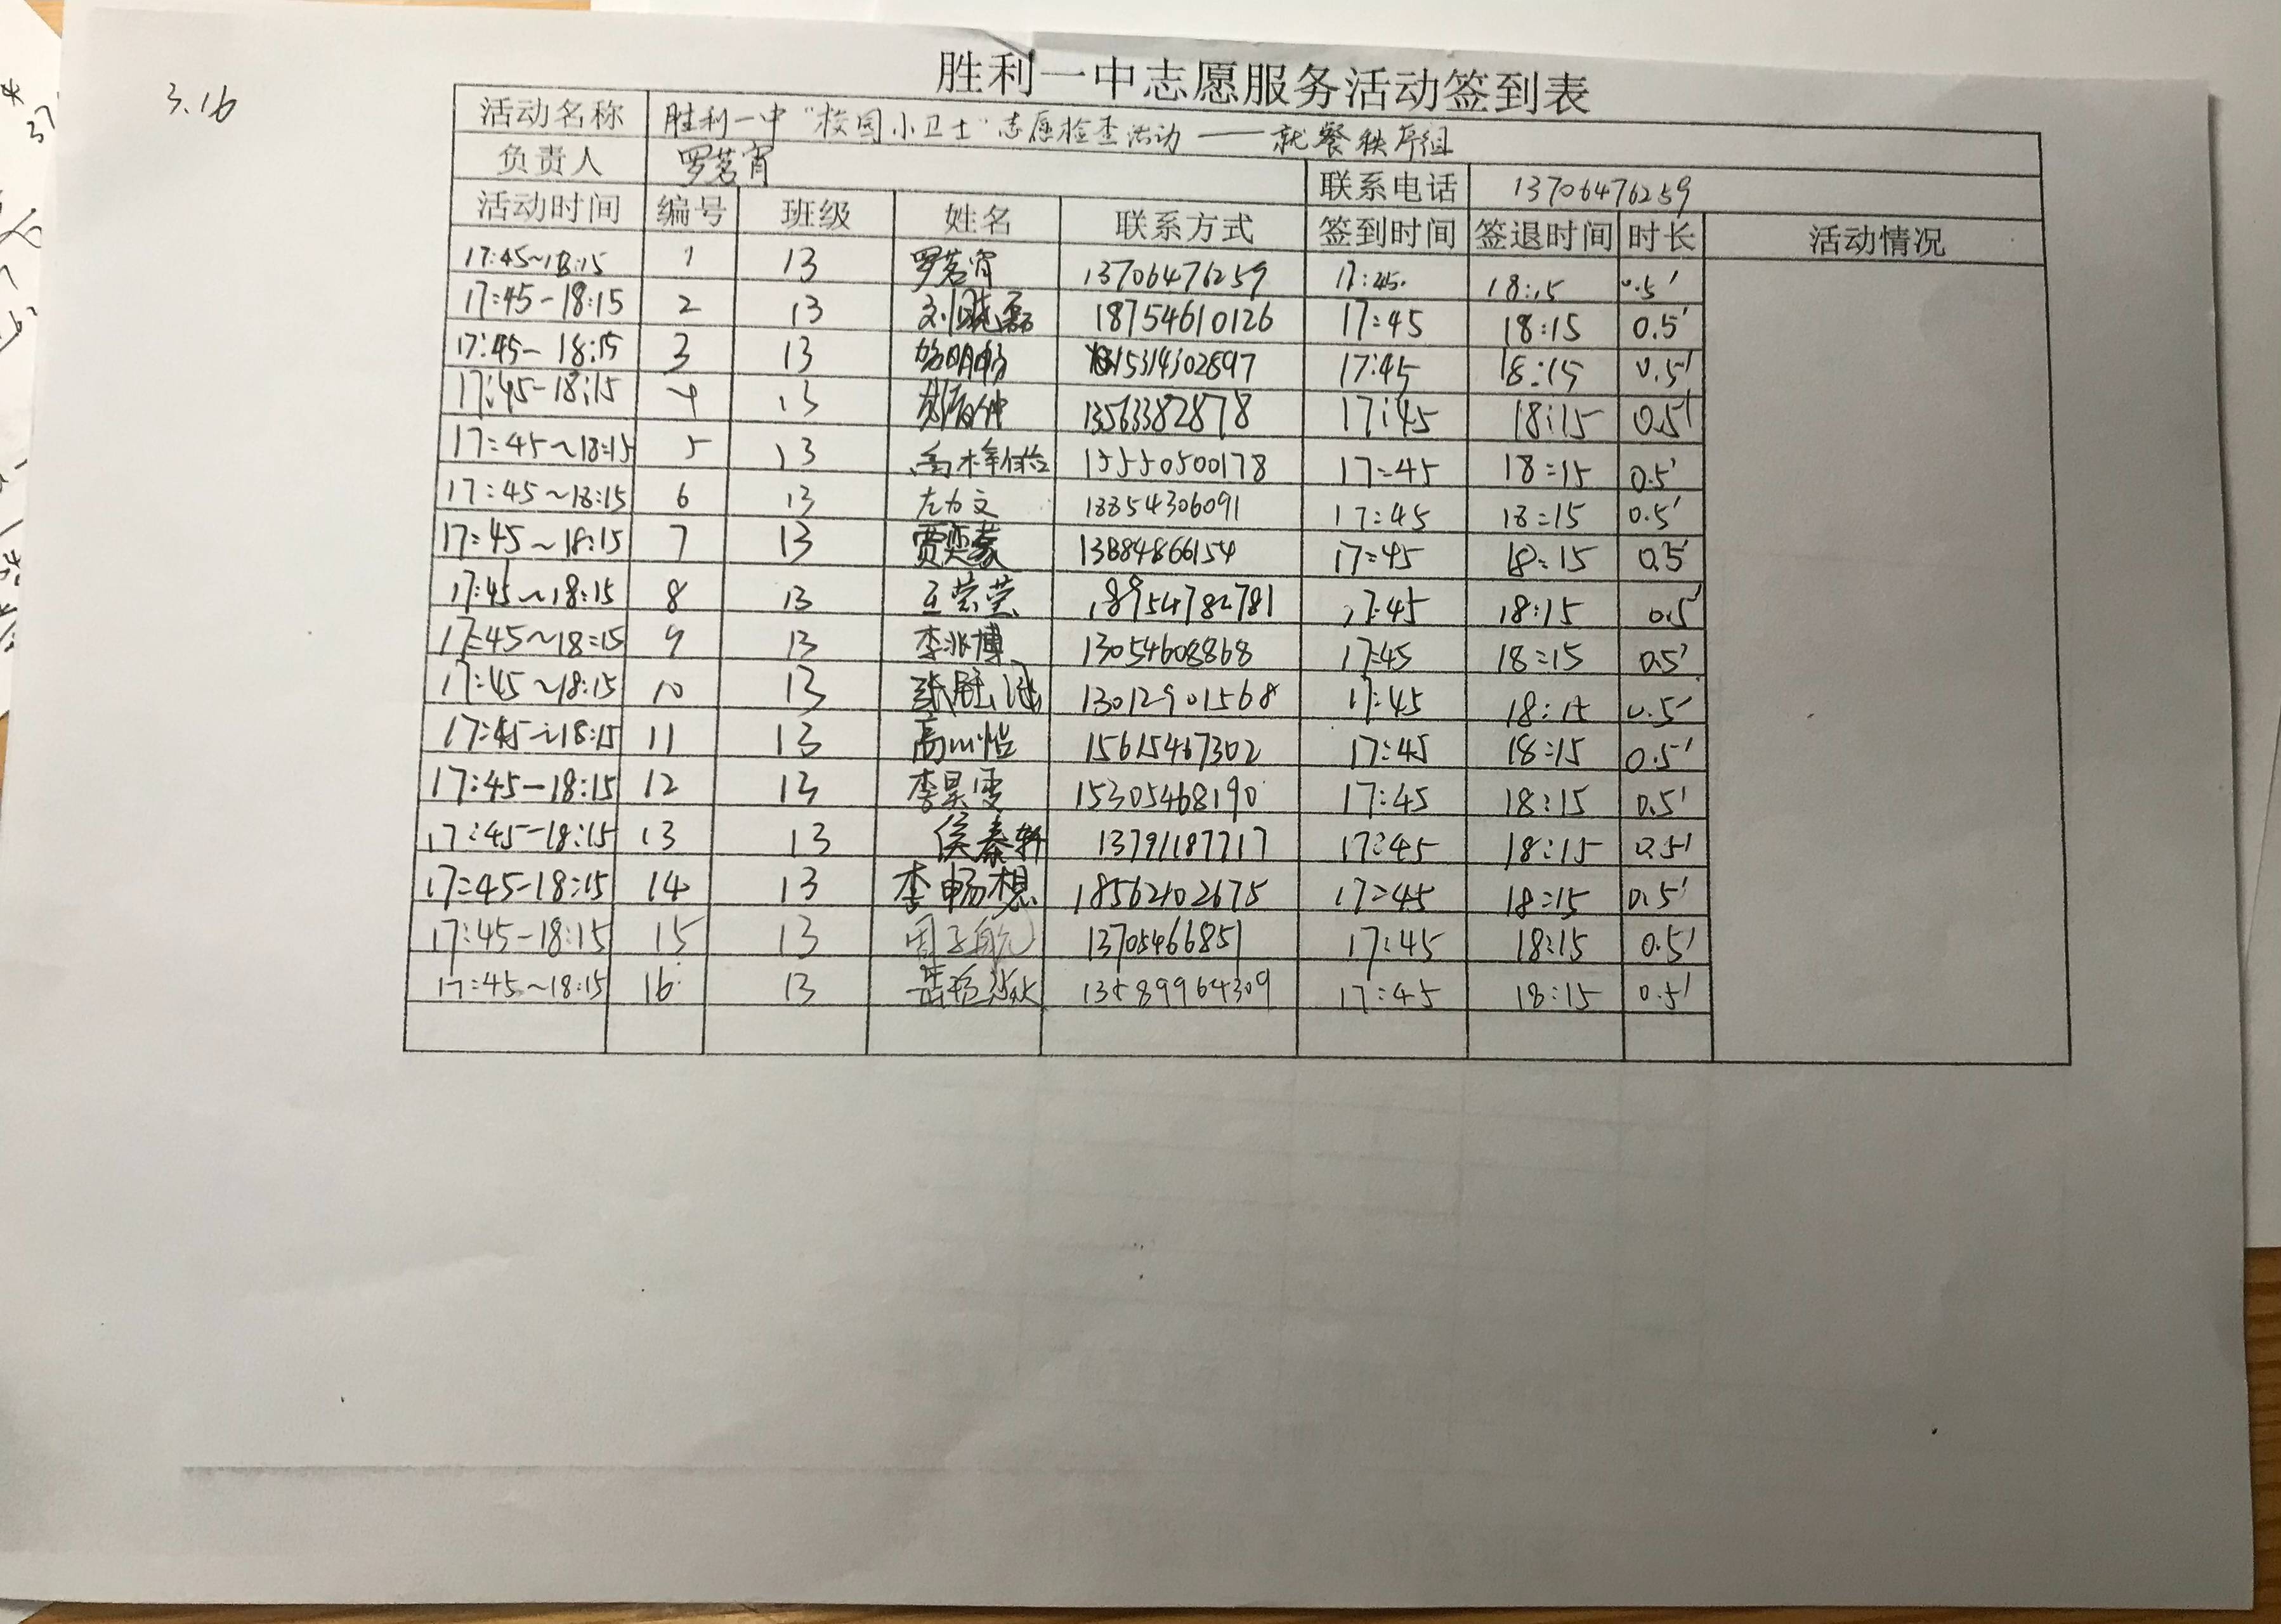 3.16
胜利一中志愿服务活动签到表
活动名称 胜利一中"校园小卫士"志愿检查活动——就餐秩序组
负责人 罗茗宵 联系电话 13706476259
活动时间 编号 班级 姓名 联系方式 签到时间 签退时间 时长 活动情况
17:45~18:15 1 13 罗茗宵 13706476259 17:45. 18:15 0.5'
17:45-18:15 2 13 刘晓磊 18754610126 17:45 18:15 0.5'
17:45-18:15 3 13 15314302897 17:45 18:15 0.5'
17:45-18:15 4 13 13563382878 17:45 18:15 0.5'
17:45~18:15 5 13 15550500178 17:45 18:15 0.5'
17:45~18:15 6 13 左方文 18854306091 17:45 18:15 0.5'
17:45~18:15 7 13 贾奕蒙 13884866154 17:45 18:15 0.5'
17:45~18:15 8 13 王莹莹 18954782781 17:45 18:15 0.5'
17:45~18:15 9 13 李兆博 13054608868 17:45 18:15 0.5'
17:45~18:15 10 13 13012901568 17:45 18:15 0.5'
17:45~18:15 11 13 15615467302 17:45 18:15 0.5'
17:45-18:15 12 13 李昊雯 15305468190 17:45 18:15 0.5'
17:45-18:15 13 13 侯泰轩 13791187717 17:45 18:15 0.5'
17:45-18:15 14 13 李畅想 18562102675 17:45 18:15 0.5'
17:45-18:15 15 13 周子航 13705466851 17:45 18:15 0.5'
17:45~18:15 16 13 13589964309 17:45 18:15 0.5'